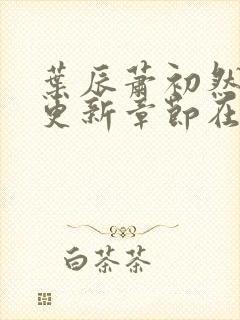 葉辰蕭初然
更新章節在
白茶茶